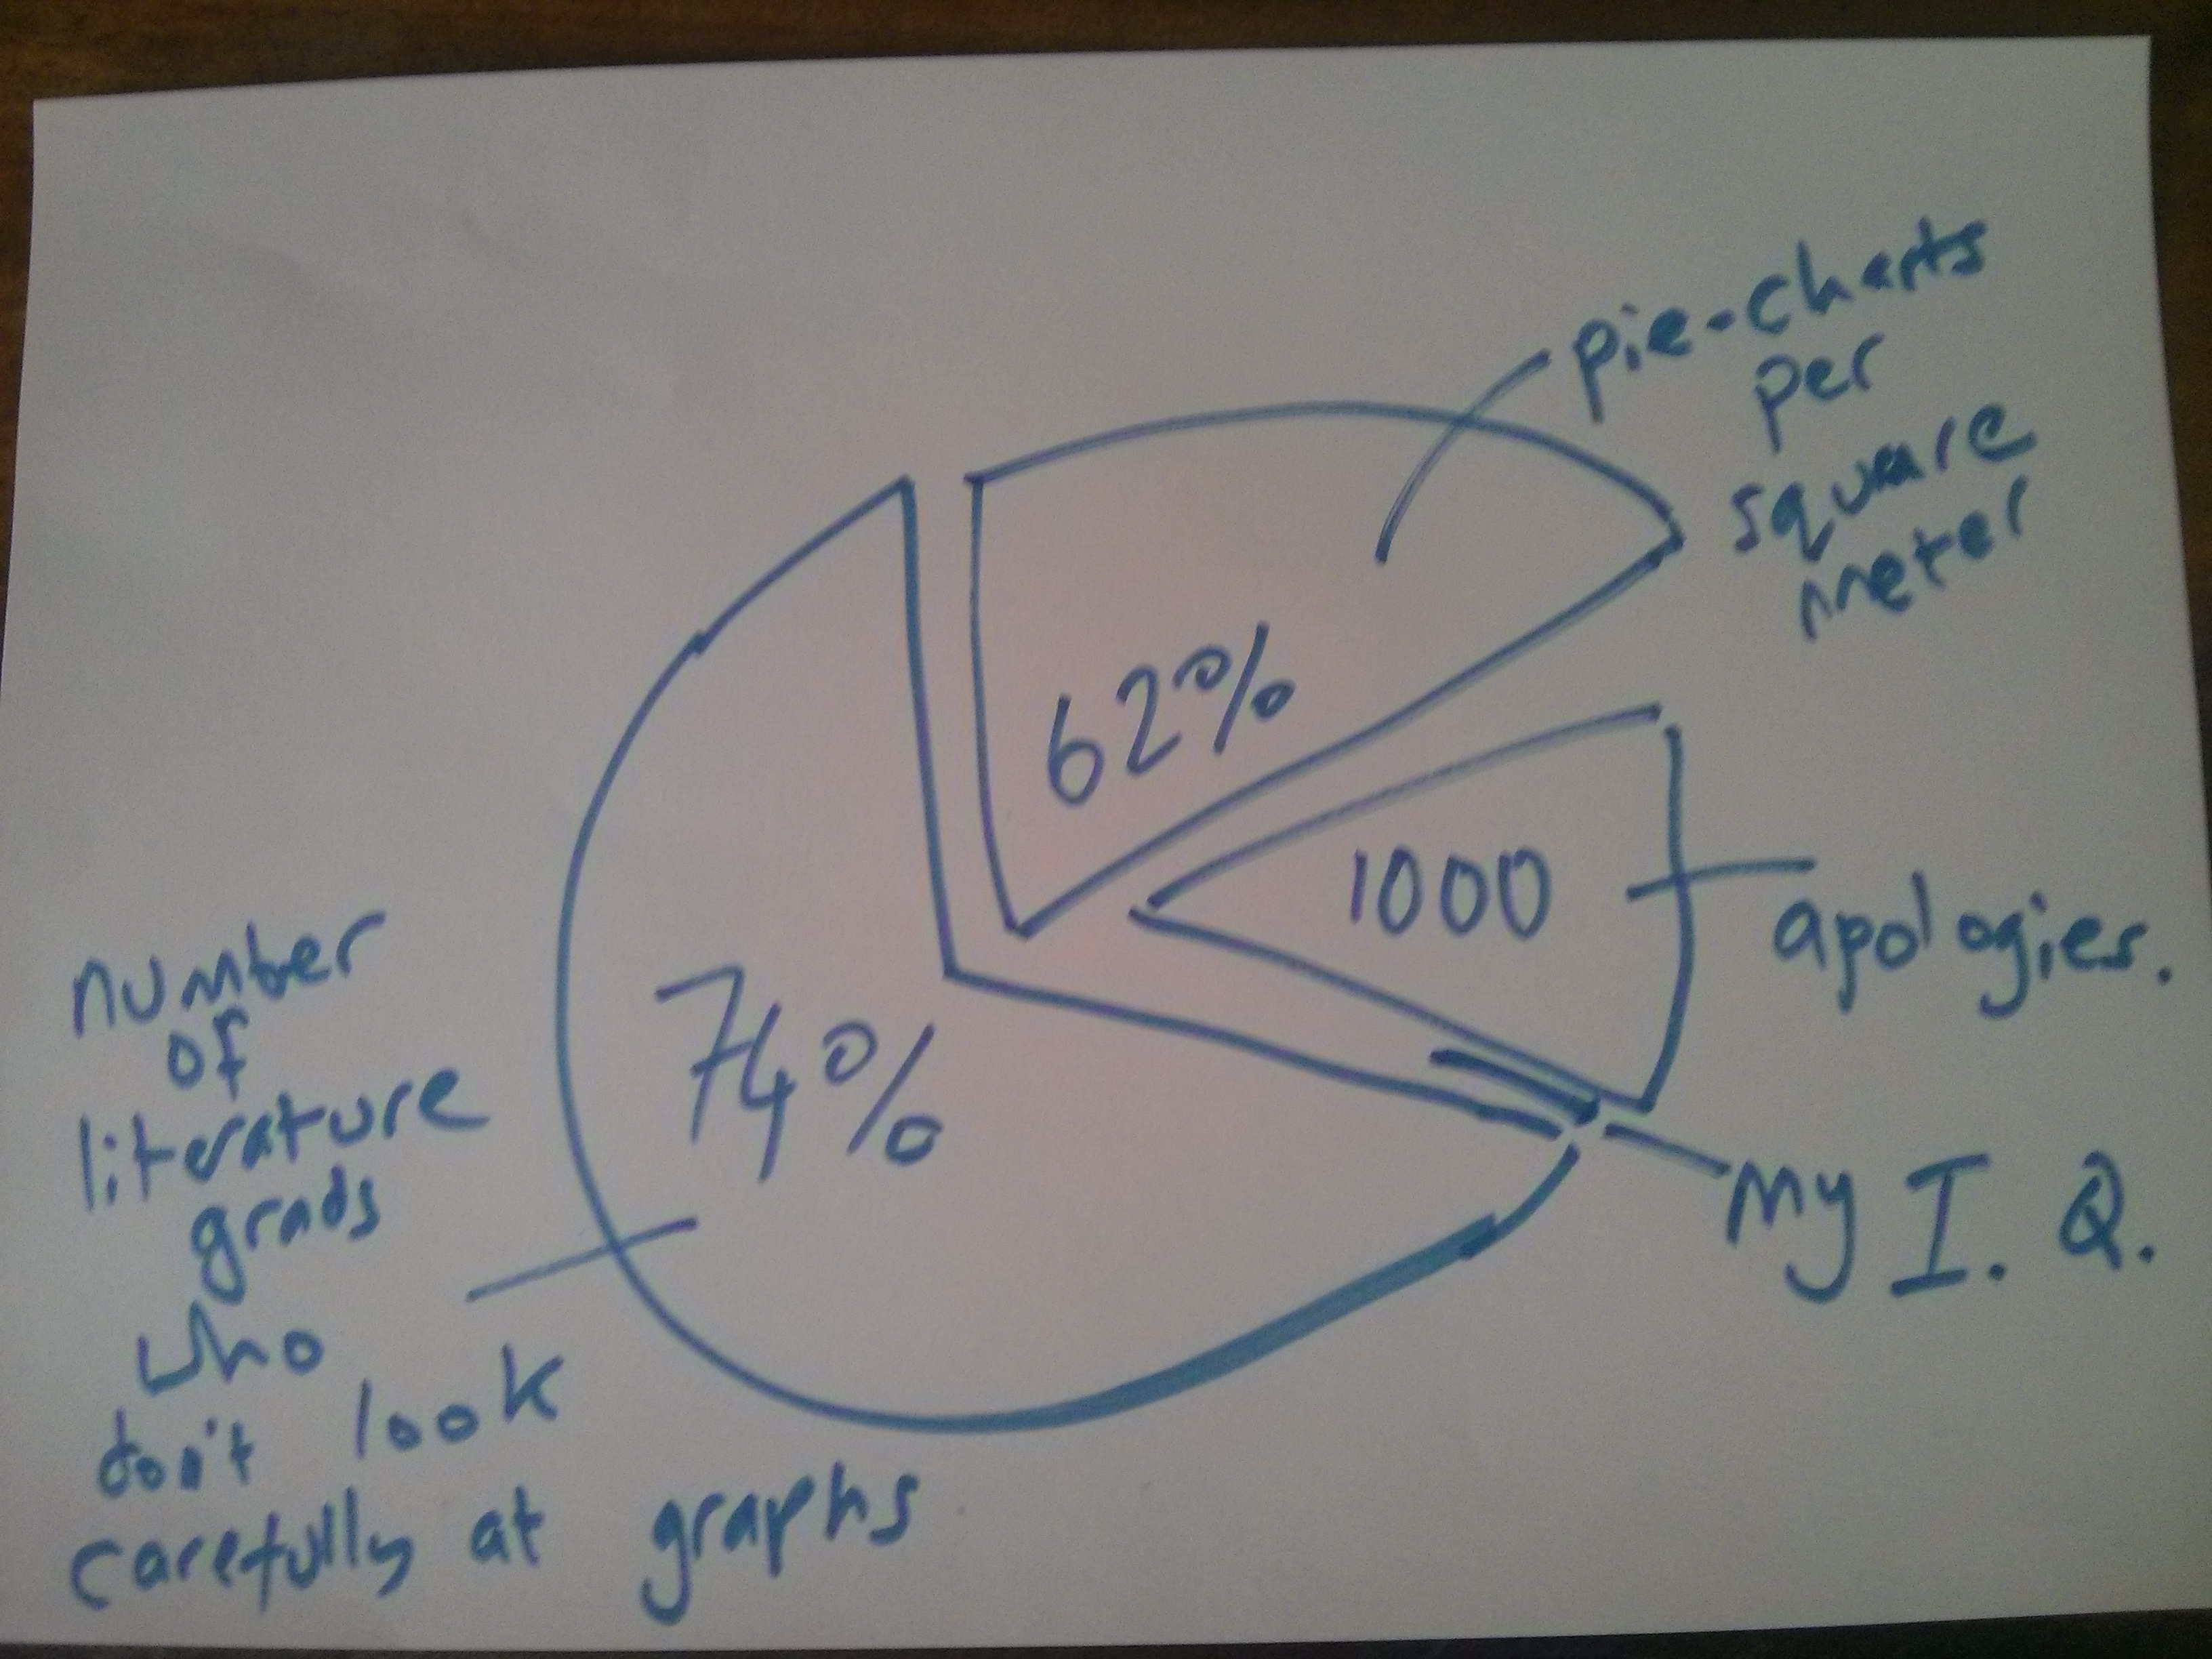 pie-charts
per
square
meter
62%
1000
apologies.
number
of
literature
grads
who
don't look
carefully at graphs
74%
my I. Q.